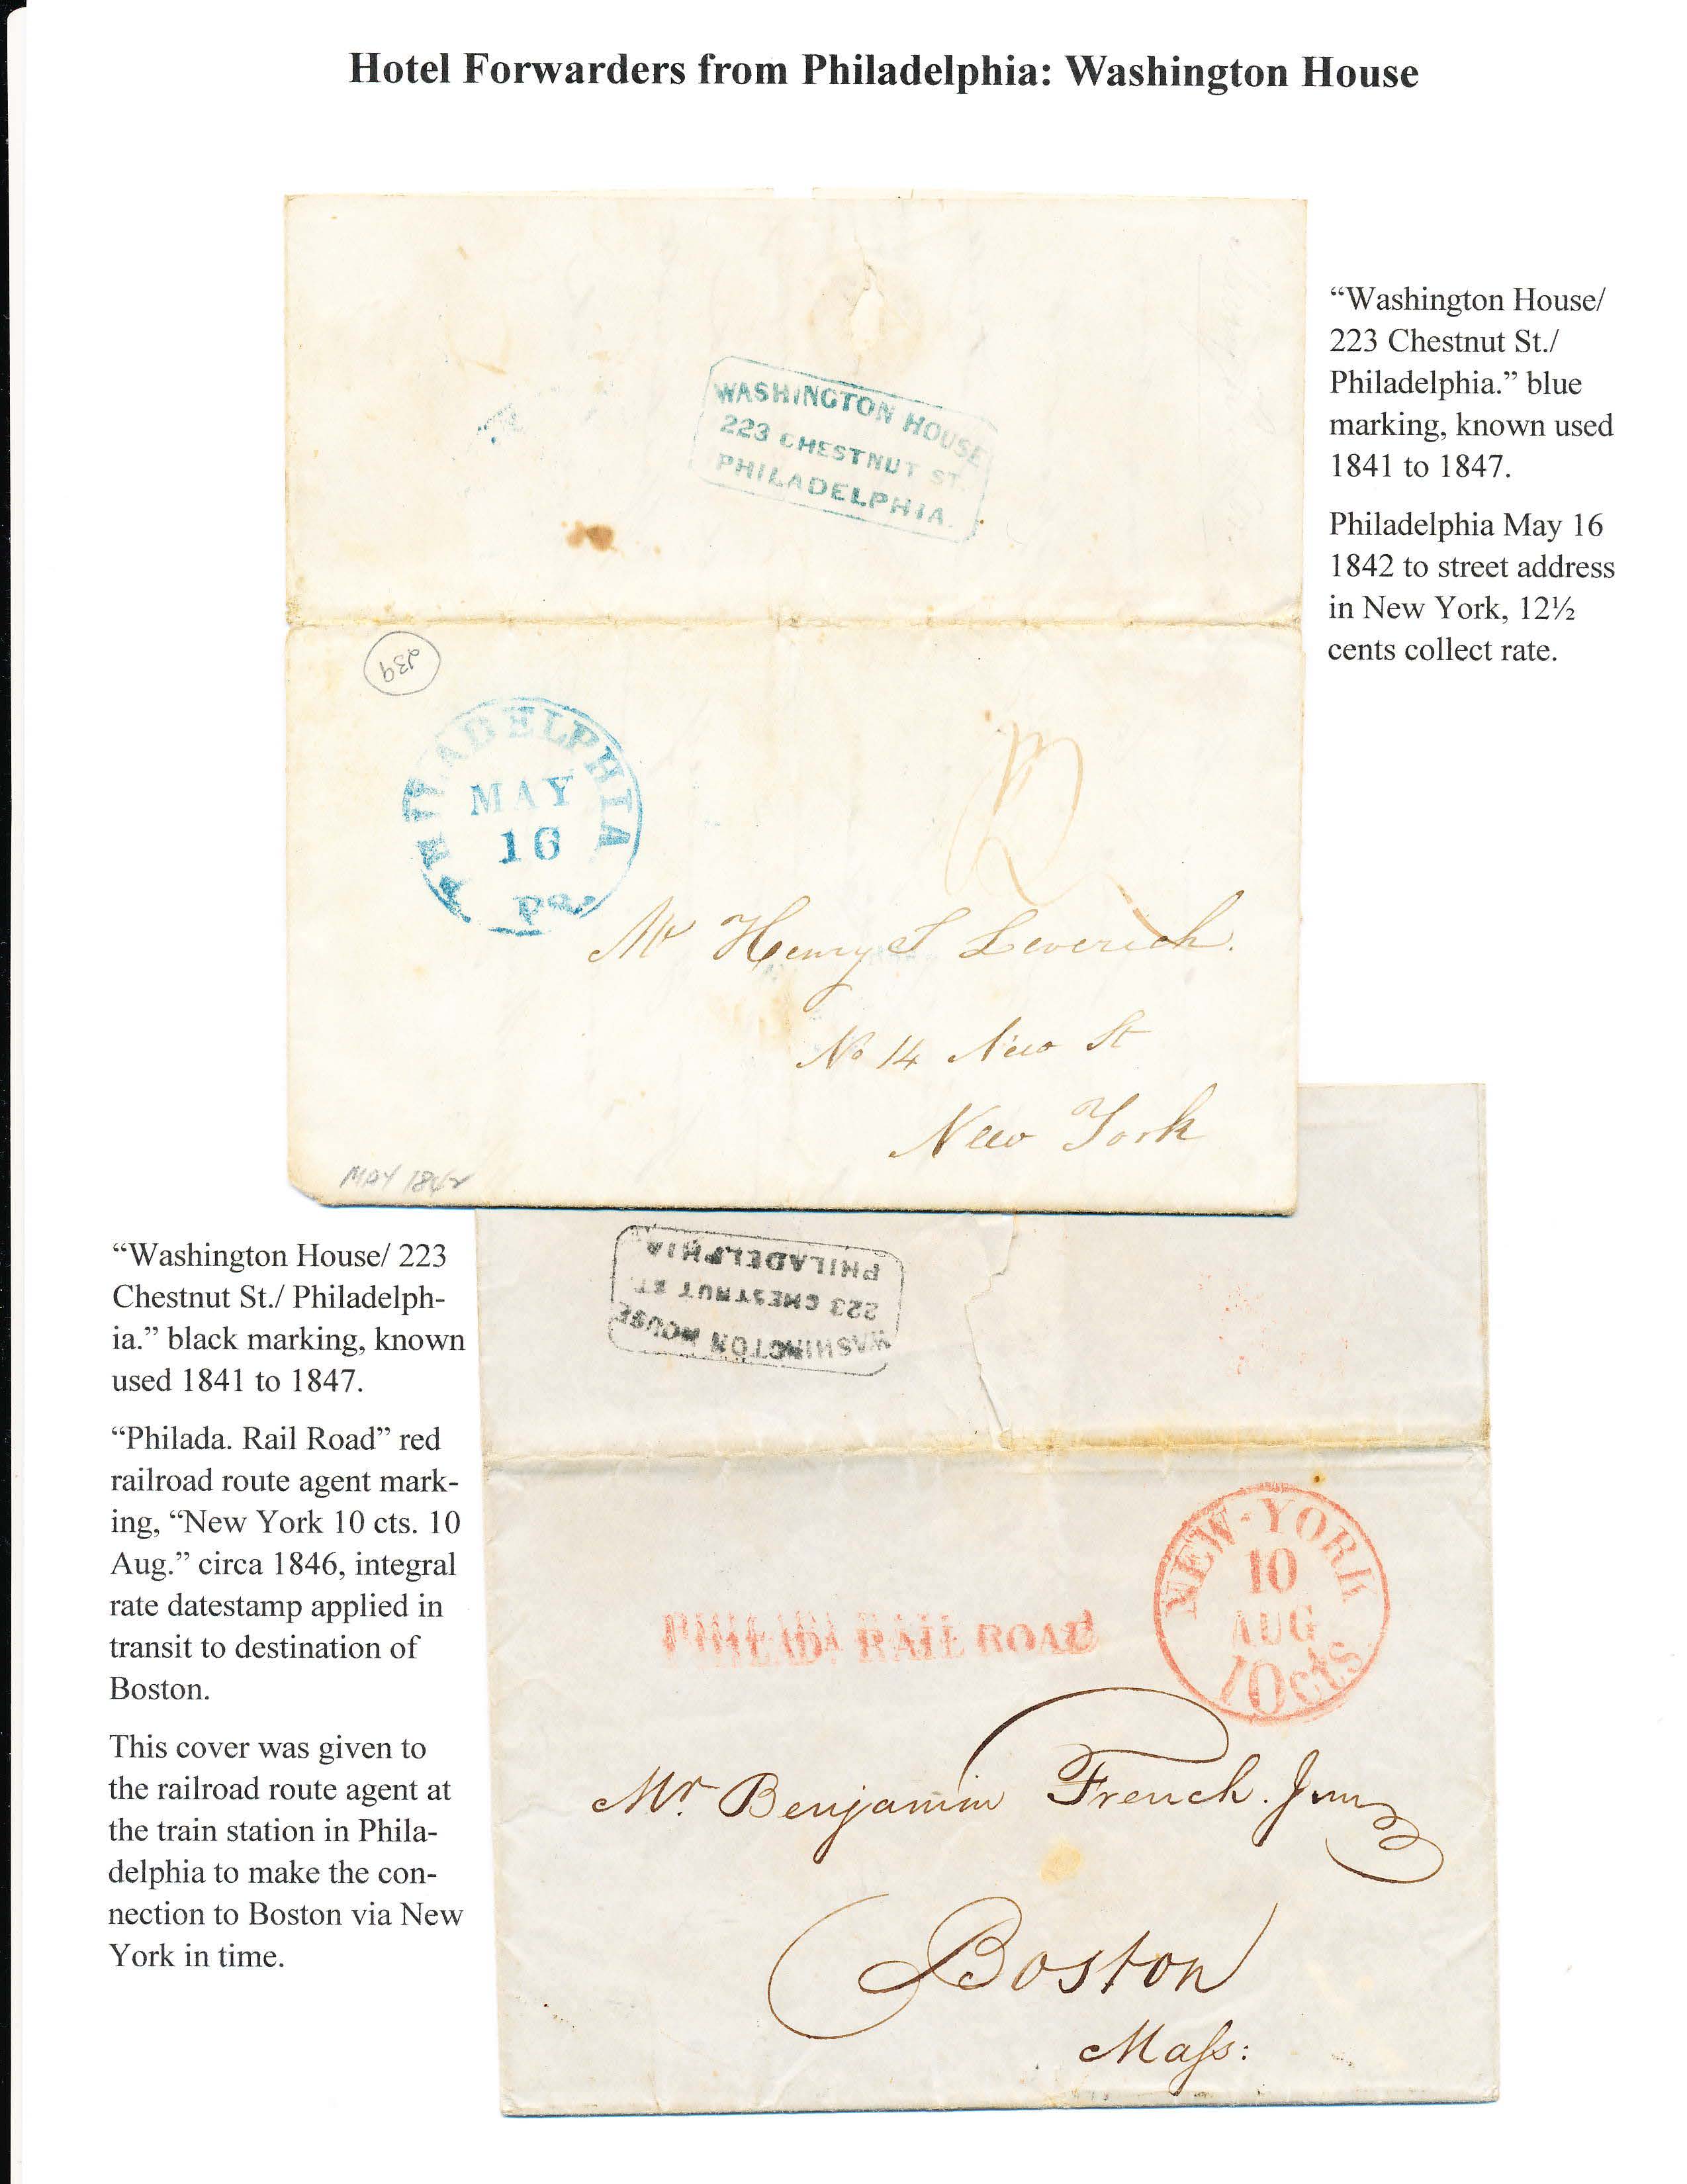 Hotel Forwarders from Philadelphia: Washington House
WASHINGTON HOUSE
223 CHESTNUT ST.
PHILADELPHIA.
“Washington House/
223 Chestnut St./
Philadelphia.” blue
marking, known used
1841 to 1847.
Philadelphia May 16
1842 to street address
in New York, 12½
cents collect rate.
239
PHILADELPHIA
MAY
16
Pa.
12
Mr Henry S Leverich.
No 14 New St
New York
MAY 1842
WASHINGTON HOUSE
223 CHESTNUT ST.
PHILADELPHIA.
“Washington House/ 223
Chestnut St./ Philadelph-
ia.” black marking, known
used 1841 to 1847.
“Philada. Rail Road” red
railroad route agent mark-
ing, “New York 10 cts. 10
Aug.” circa 1846, integral
rate datestamp applied in
transit to destination of
Boston.
This cover was given to
the railroad route agent at
the train station in Phila-
delphia to make the con-
nection to Boston via New
York in time.
NEW-YORK
10
AUG
10cts
PHILADA. RAIL ROAD
Mr. Benjamin French. Junr
Boston
Maſs: